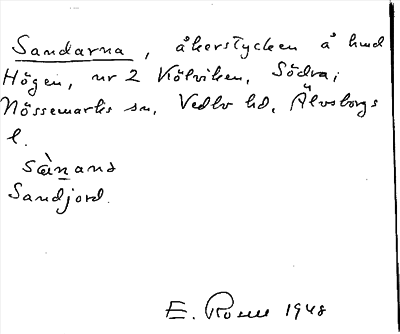 Sandarna, åkerstycken å hmd
Högen, nr 2 Kölviken, Södra,
Nössemarks sn, Vedbo hd, Älvsborgs
l.
sànanɑ
Sandjord.
E. Rosell 1948